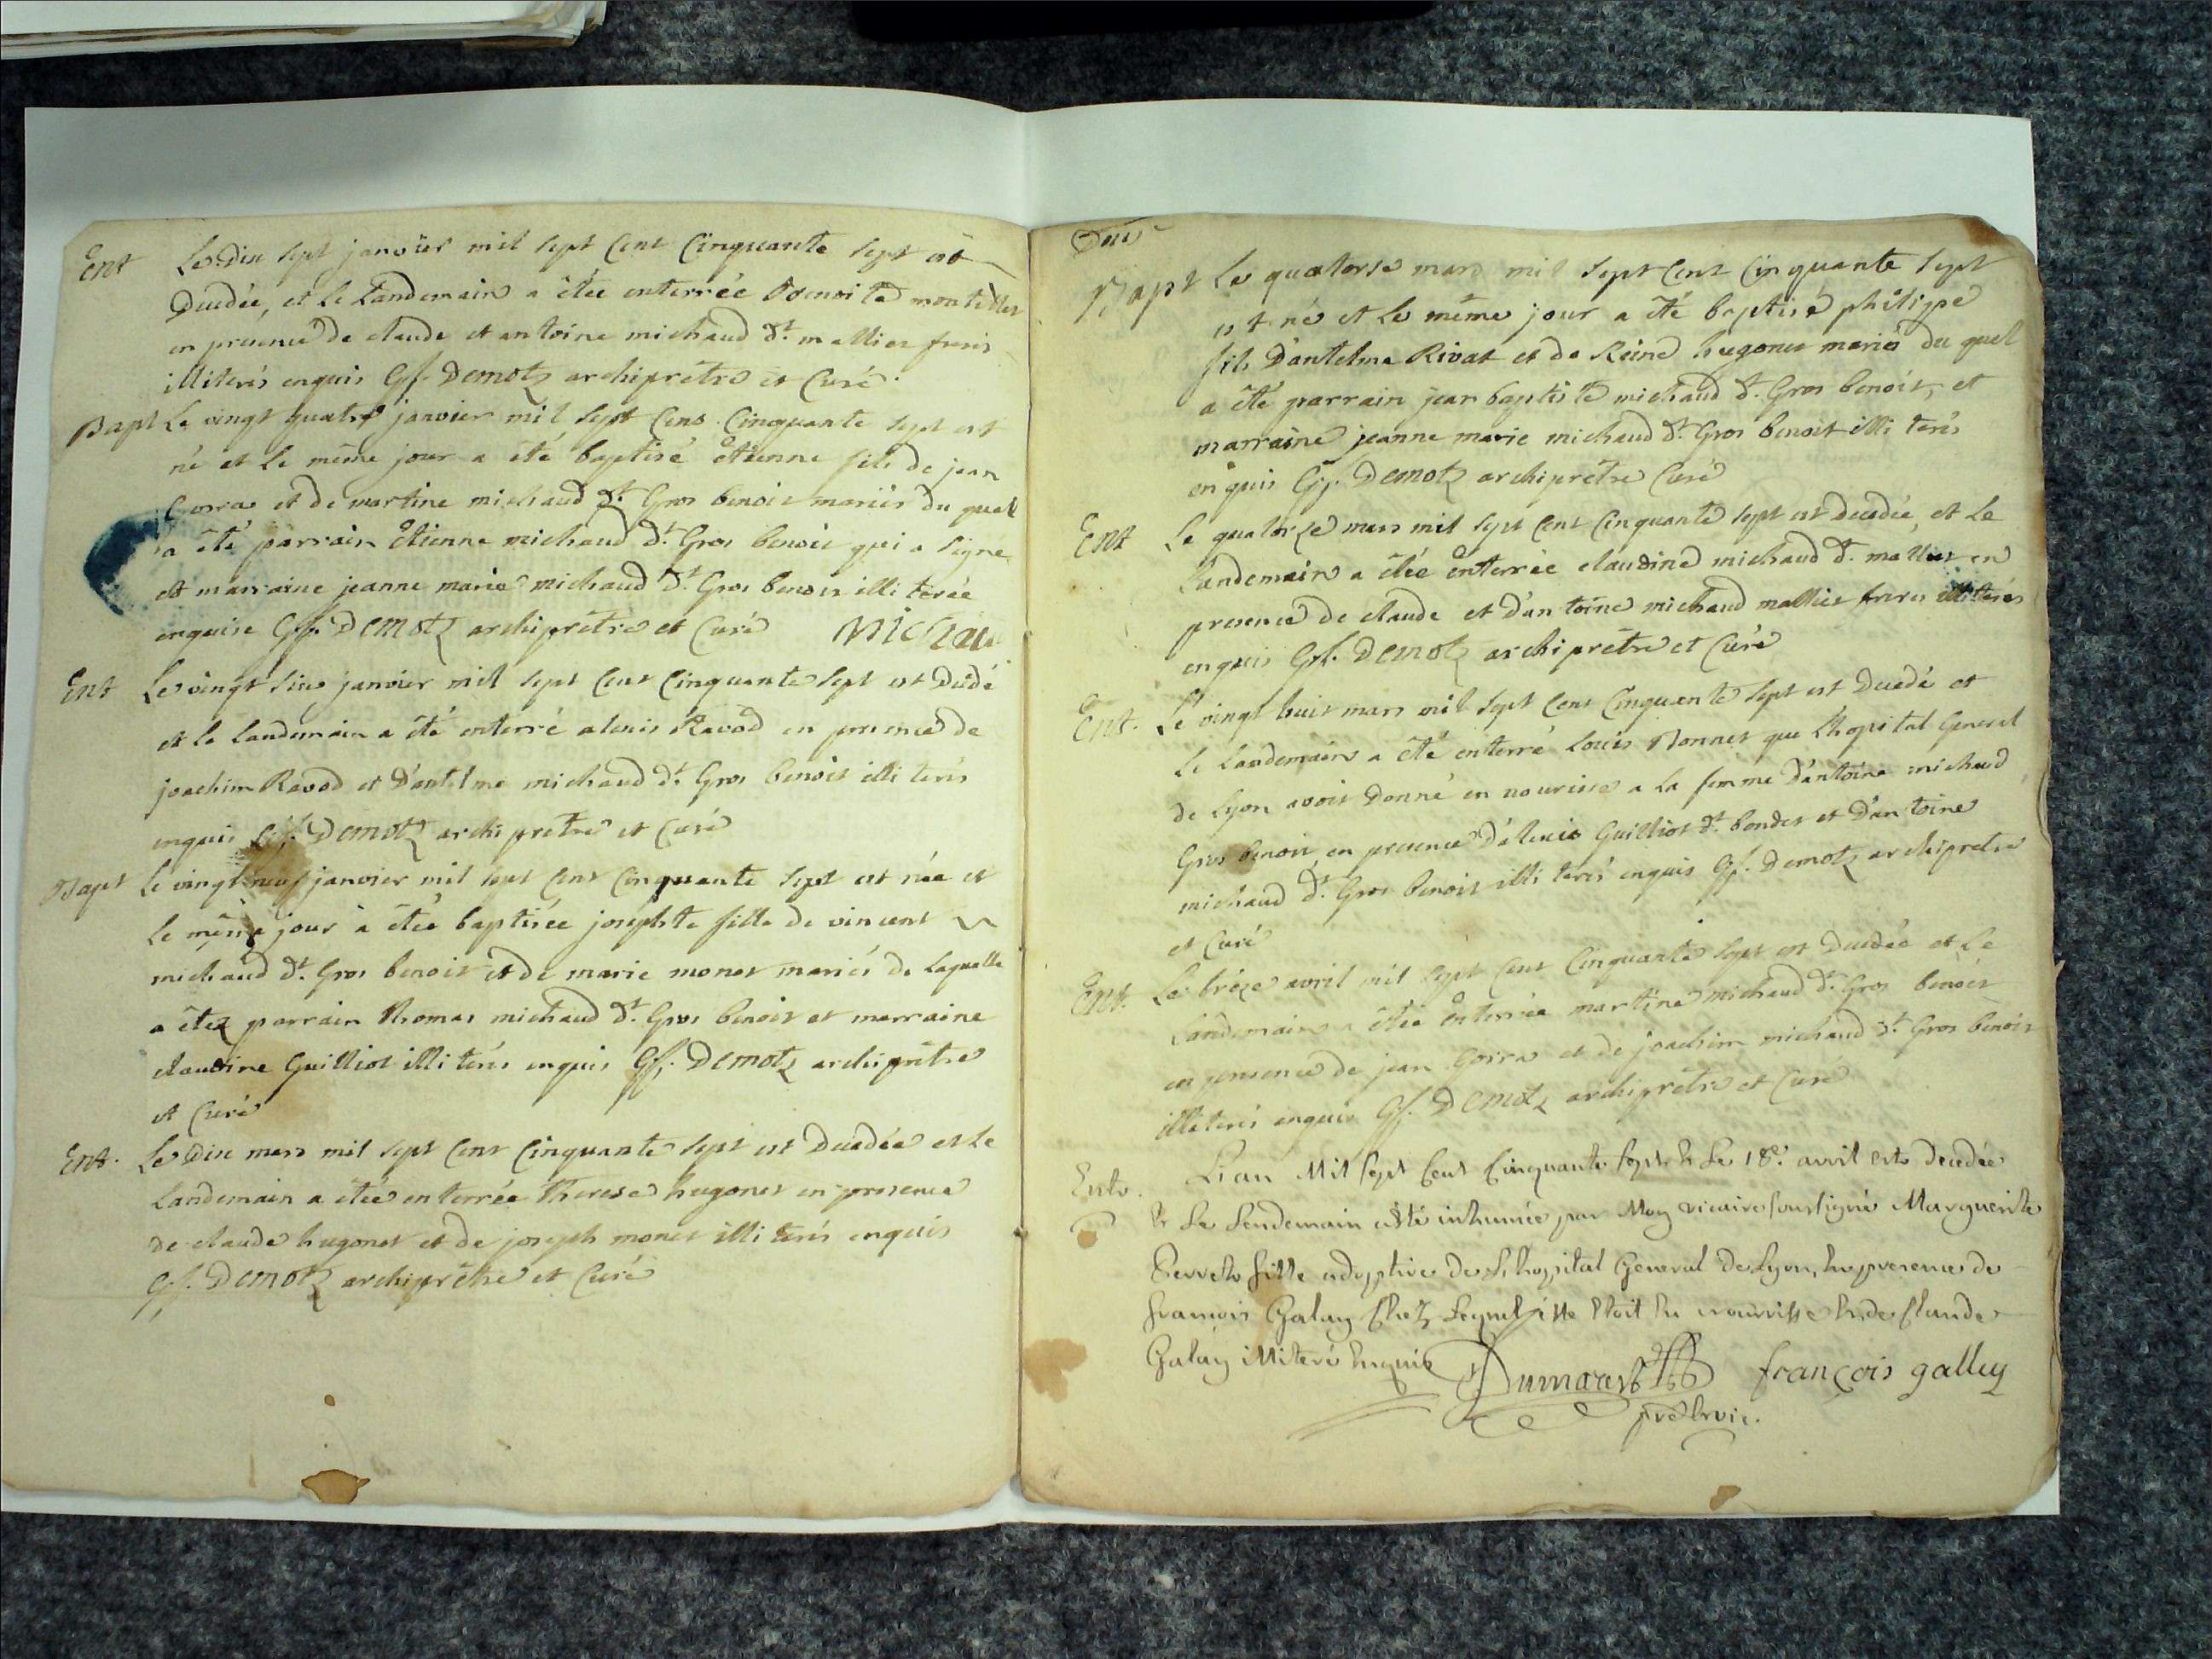 Ent Le dix sept janvier mil sept cent cinquante sept est
Decedée, et le Landemain a étée enterrée Benoite montillet
en presence de claude et antoine michaud dt. mallier freres
illiterés enquis Gf. Demotz archiprêtre et Curé.
Bapt Le vingt quatre janvier mil sept cens Cinquante sept est
né et le même jour a été baptisé étienne fils de jean
Goira et de martine michaud dt. Gros benoit mariés du quel
a été parrain étienne michaud dt. Gros benoit qui a signe
et marraine jeanne marie michaud dt. Gros benoit illiterée
enquise Gf. Demotz archiprêtre et Curé Michau
Ent Le vingt six janvier mil sept cent Cinquante sept est Decedé
et le Landemain a été enterré alexis Ravod en presence de
joachim Ravod et D'antelme michaud dt. Gros benoit illiterés
enquis Gf. Demotz archiprêtre et Curé
Bapt Le vingt neuf janvier mil sept cent Cinquante sept est née et
le même jour a étée baptisée josephte fille de vincent
michaud dt. Gros benoit et de marie monet mariés de Laquelle
a étez parrain Thomas michaud dt. Gros benoit et marraine
claudine Guilliot illiterés enquis Gf. Demotz archiprêtre
et Curé
Ent. Le dix mars mil sept cent Cinquante sept est Decedée et Le
Landemain a étée enterrée Therese hugonet en presence
de claude hugonet et de joseph monet illiterés enquis
Gf. Demotz archiprêtre et Curé
Bapt Le quatorse mars mil sept cent cinquante sept
est né et Le même jour a été baptisé philippe
fils D'antelme Rivat et de Reine hugonet mariés du quel
a été parrain jean baptiste michaud dt. Gros benoit, et
marraine jeanne marie michaud dt. Gros benoit illiterés
enquis Gf. Demotz archiprêtre Curé
Ent Le quatorze mars mil sept cent Cinquante sept est Decedée, et Le
Landemain a étée enterrée claudine michaud dt. mallier en
presence de claude et d'antoine michaud mallier freres illiterés
enquis Gf. Demotz archiprêtre et Curé
Ent. Le vingt huit mars mil sept cent Cinquante sept est Decedé et
Le Landemain a été enterré Louis Bonnet que Lhopital General
de Lyon avoit Donné en nourisse a La femme D'antoine michaud
Gros benoit, en presence d'alexis Guilliot dt. bondet et D'antoine
michaud dt. Gros benoit illiterés enquis Gf. Demotz archiprêtre
et Curé
Ent. Le treze avril mil sept cent Cinquante sept est Decedée et Le
Landemain a étée enterrée martine michaud dt. Gros benoit
en presence de jean Goira et de joachim michaud dt. Gros benoit
illiterés enquis Gf. Demotz archiprêtre et Curé
Ent. L'an Mil sept Cent Cinquante sept & Le 18e. avril est decedée
& Le Lendemain a été inhumée par Moy vicaire soussigné Marguerite
fille adoptive de L'hopital General de Lyon, en presence de
francois Galay Chez Lequel elle étoit en nourrisse & de Claude
Galay illiteré enquis Dumarest françois galley
prêtre vic.